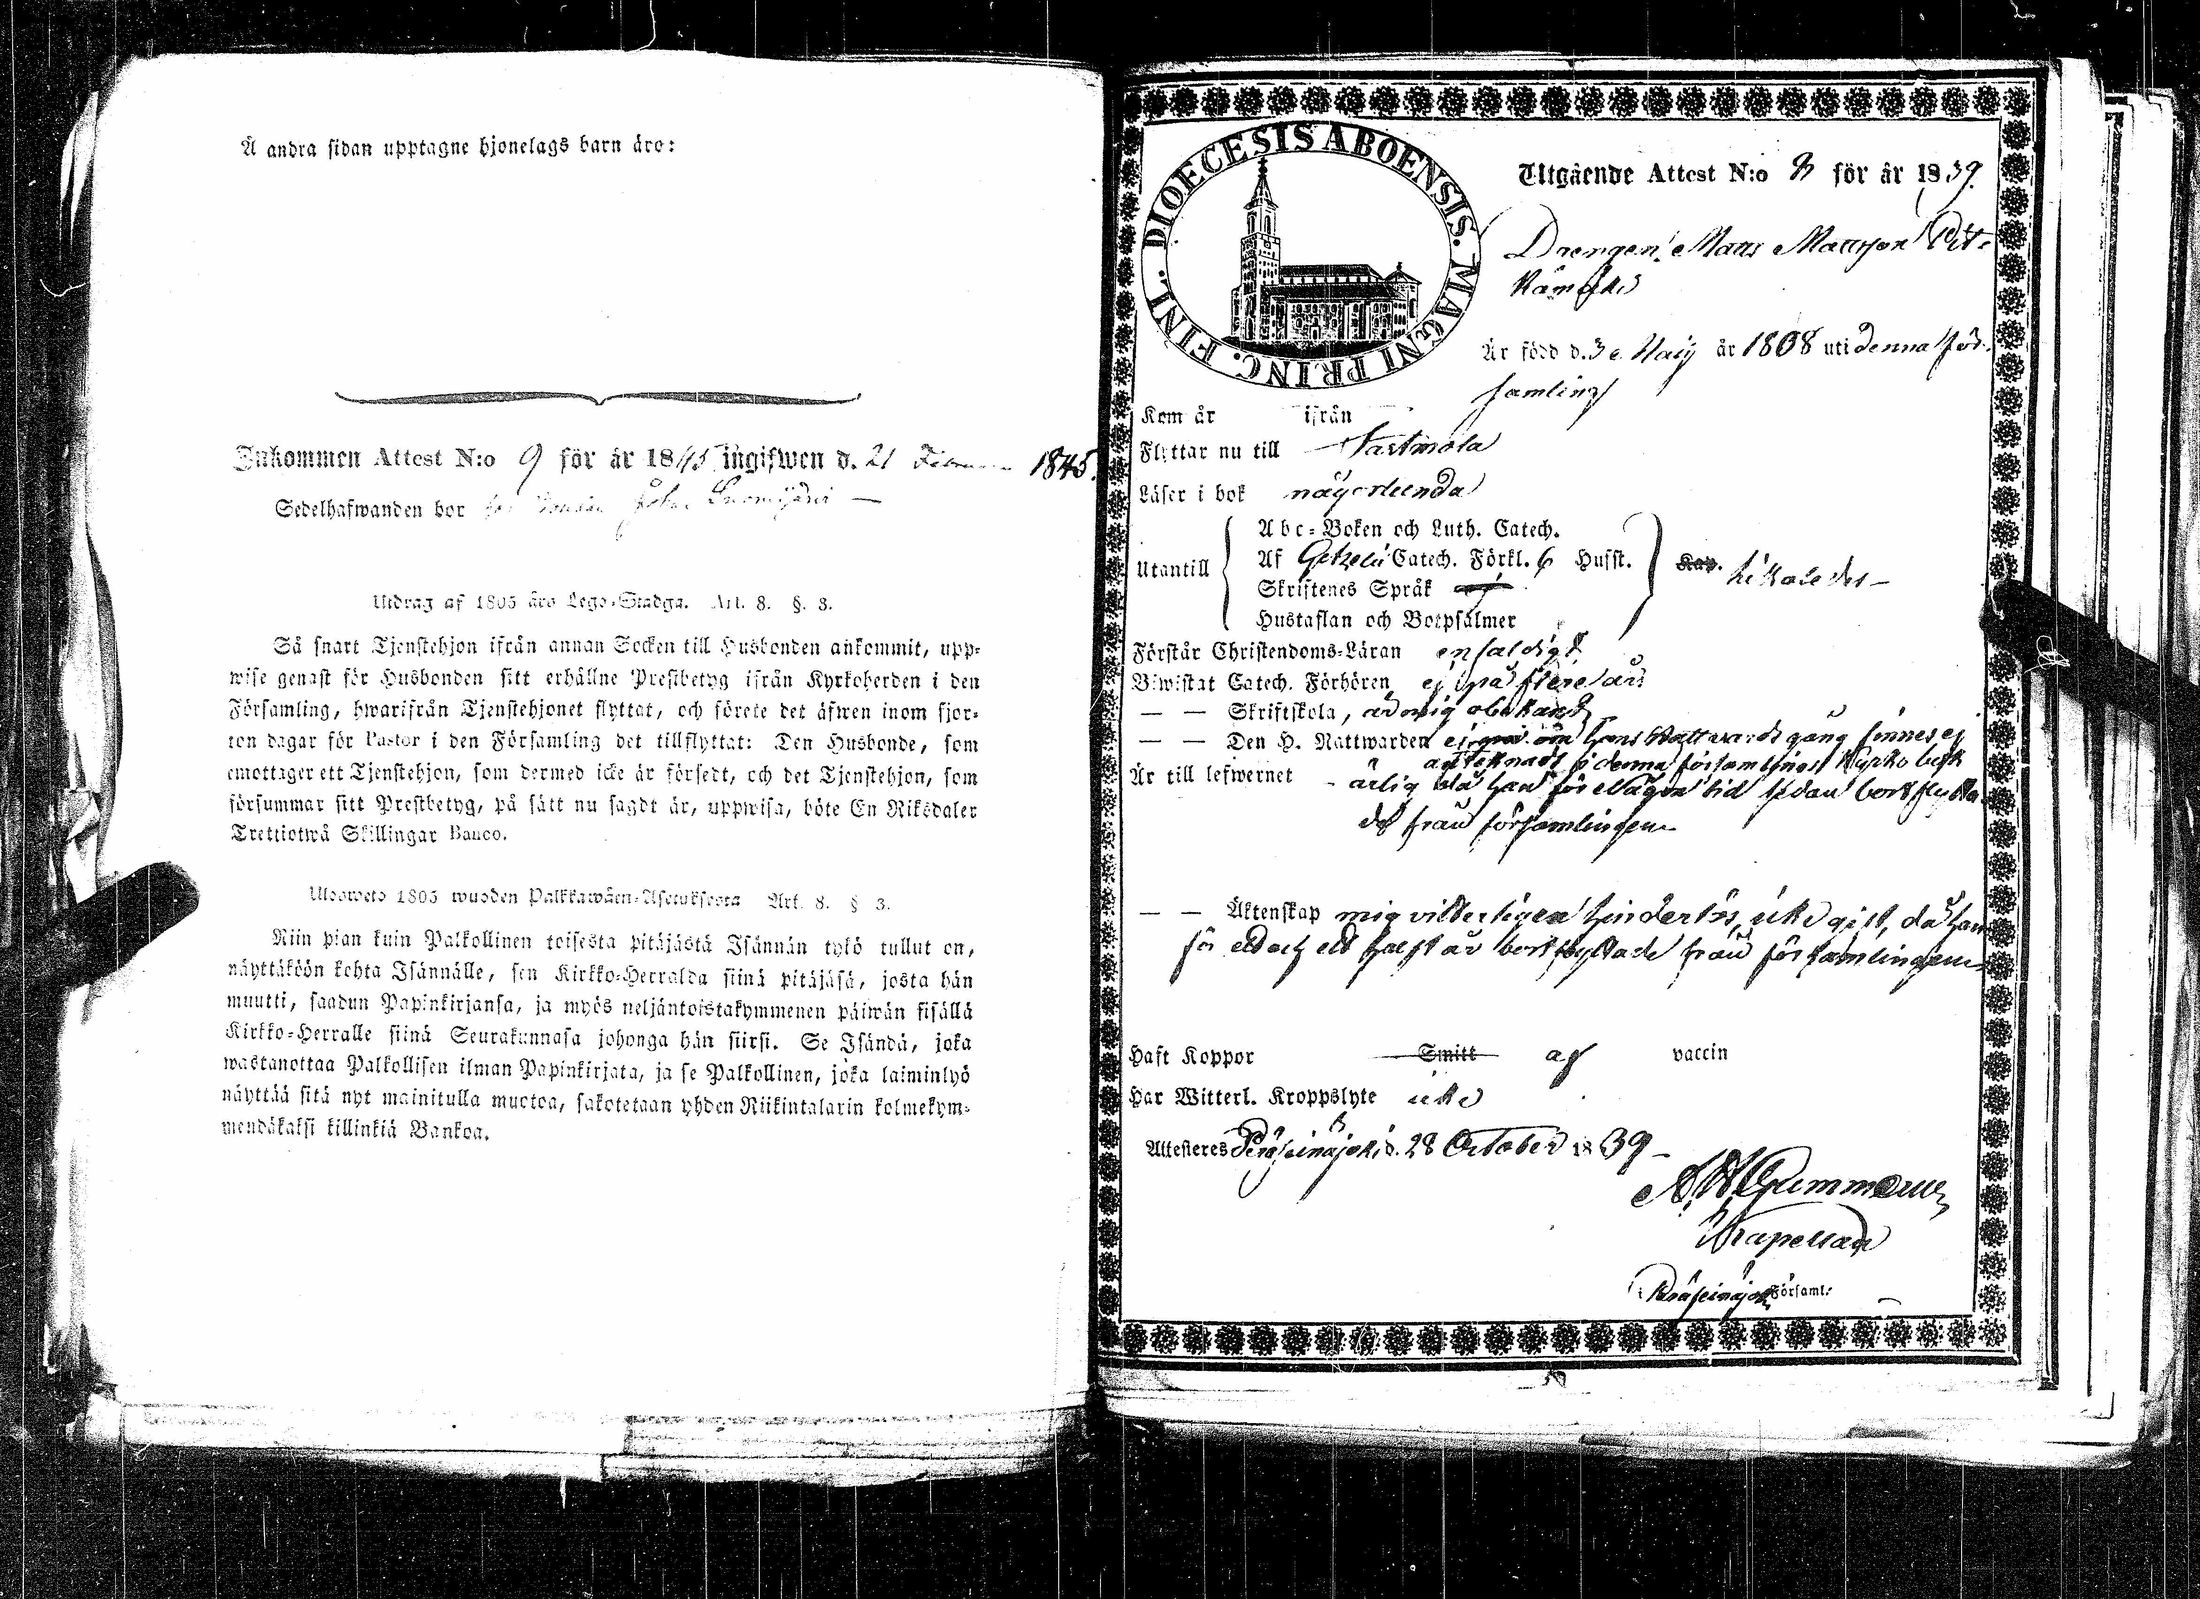 Å andra sidan upptagne hjonelags barn äro:
Inkommen Attest N:o 9 för år 1845 ingifwen d. 21 Februari 1845.
Sedelhafwanden bor
Utdrag af 1805 års Lego-Stadga. Art. 8. §. 3.
Så snart Tjenstehjon ifrån annan Socken till Husbonden ankommit, upp-
wise genast för Husbonden sitt erhållne Prestbetyg ifrån Kyrkoherden i den
Församling, hwarifrån Tjenstehjonet flyttat, och förete det äfwen inom fjor-
ton dagar för Pastor i den Församling det tillflyttat: Den Husbonde, som
emottager ett Tjenstehjon, som dermed icke är försedt, och det Tjenstehjon, som
försummar sitt Prestbetyg, på sätt nu sagdt är, uppwisa, böte En Riksdaler
Trettiotwå Skillingar Banco.
Ulosweto 1805 wuoden Palkkawäen-Asetuksesta Art. 8. § 3.
Niin pian kuin Palkollinen toisesta pitäjästä Isännän tykö tullut on,
näyttäköön kohta Isännälle, sen Kirkko-Herralda siinä pitäjäsä, josta hän
muutti, saadun Papinkirjansa, ja myös neljäntoistakymmenen päiwän sisällä
Kirkko-Herralle siinä Seurakunnasa johonga hän siirsi. Se Isändä, joka
wastanottaa Palkollisen ilman Papinkirjata, ja se Palkollinen, joka laiminlyö
näyttää sitä nyt mainitulla muotoa, sakotetaan yhden Riikintalarin kolmekym-
mendäkaksi killinkiä Bankoa.
DIOECESIS ABOENSIS. MAGNI PRINC. FINL.
Utgående Attest N:o för år 1839.
Drengen Matts Mattsson Pit-
kämäki
Är född d. 3 e Maij år 1808 uti denna för-
samling
Kom år ifrån
Flyttar nu till Sastmola
Läser i bok någorlunda
Utantill
Abc-Boken och Luth. Catech.
Af Gezelii Catech. Förkl. 6 Husst. Kap. likaledes
Skriftenes Språk
Hustaflan och Botpsalmer
Förstår Christendoms-Läran enfaldigt
Biwistat Catech. Förhören ej på flere år
— — Skriftskola, är mig obekant
— — Den H. Nattwarden om hans Nattvardsgång finnes ej
antecknadt i denna församlings Kyrko bok
Är till lefwernet - ärlig då han för någon tid sedan bortflytta-
de från församlingen
— — Äktenskap mig vitterligen hinderlös, icke gift, då han
för ett och ett halft år bortflyttade från församlingen
Haft Koppor Smitt af vaccin
Har Witterl. Kroppslyte icke
Attesteres Peräseinäjoki d. 28 October 1839
Kapellan
i Peräseinäjoki Församl: